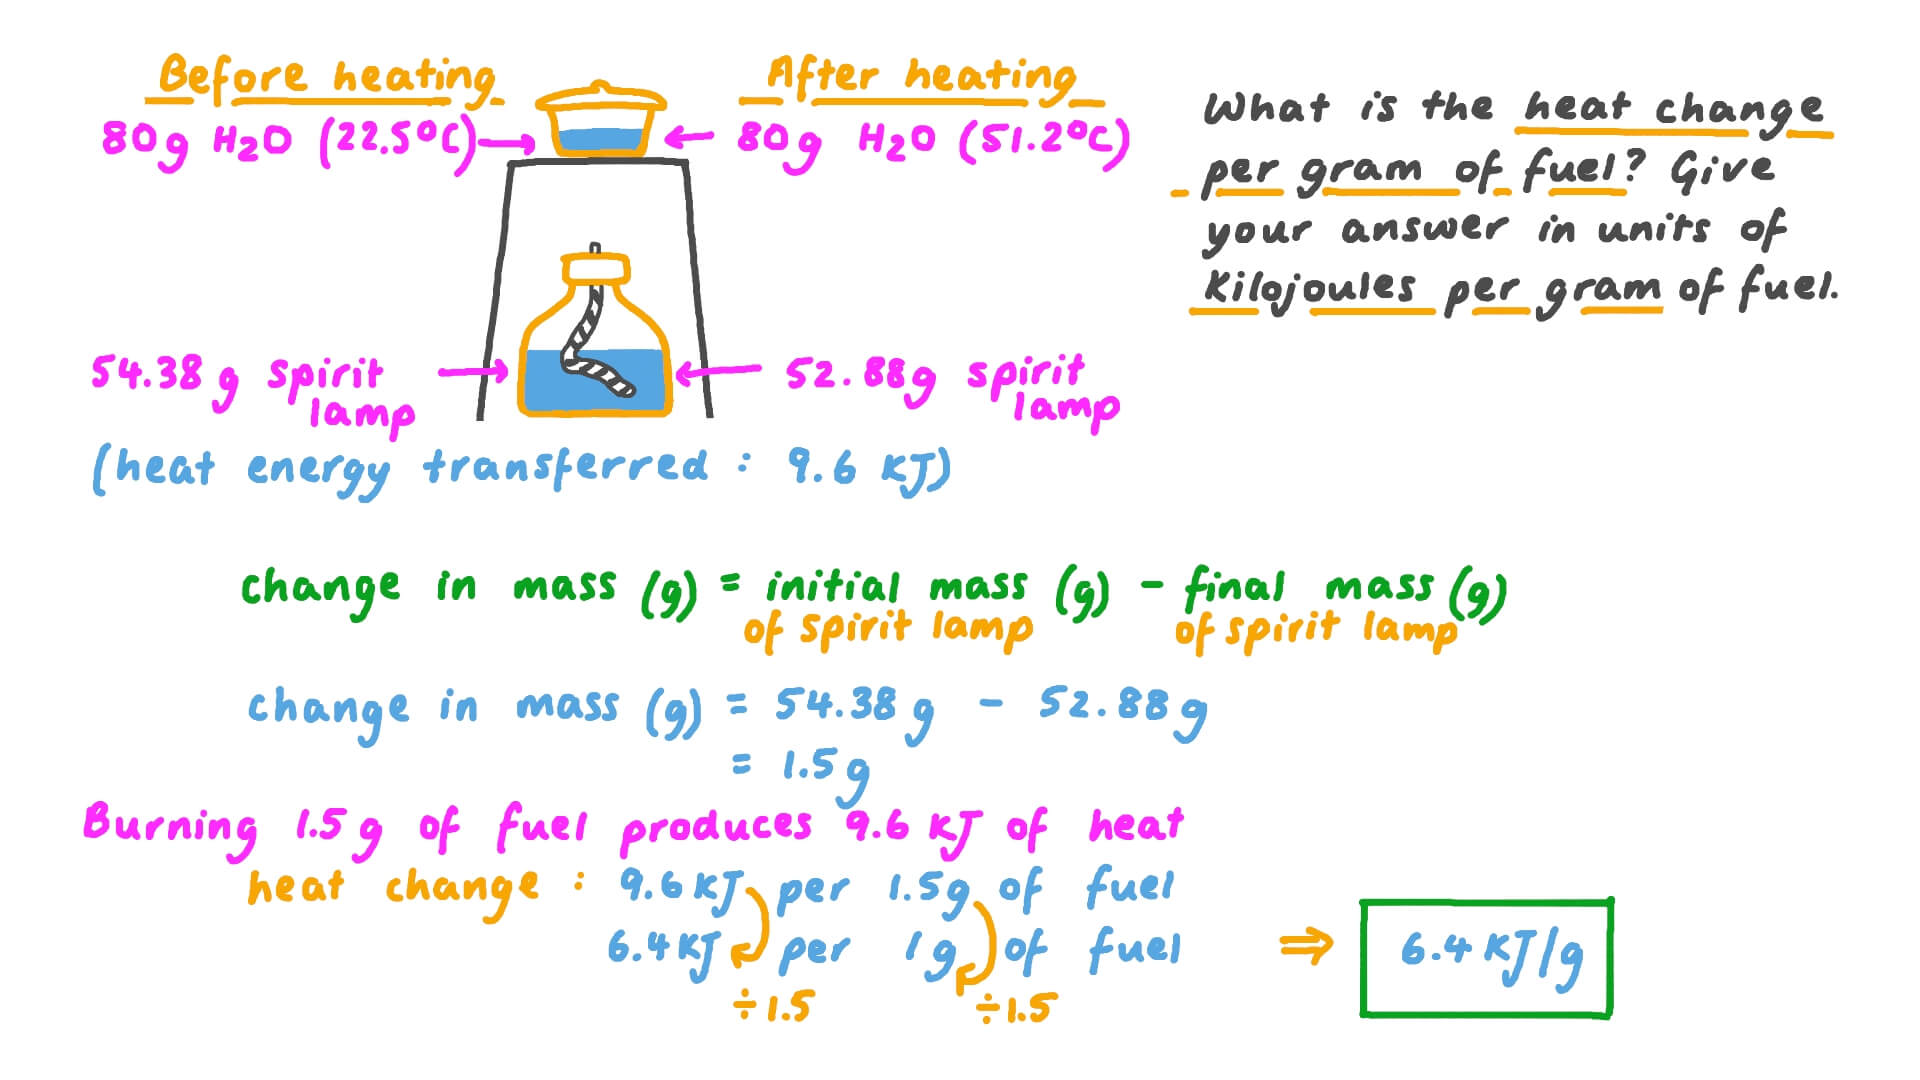 Before heating
After heating
80g H2O (22.5°C)
80g H2O (51.2°C)
What is the heat change
per gram of fuel? Give
your answer in units of
kilojoules per gram of fuel.
54.38 g spirit
lamp
52.88g spirit
lamp
(heat energy transferred : 9.6 KJ)
change in mass (g) = initial mass (g) - final mass (g)
of spirit lamp
of spirit lamp
change in mass (g) = 54.38 g - 52.88 g
= 1.5 g
Burning 1.5 g of fuel produces 9.6 KJ of heat
heat change : 9.6 KJ per 1.5g of fuel
6.4 KJ per 1g of fuel
⇒ 6.4 KJ/g
÷ 1.5
÷ 1.5